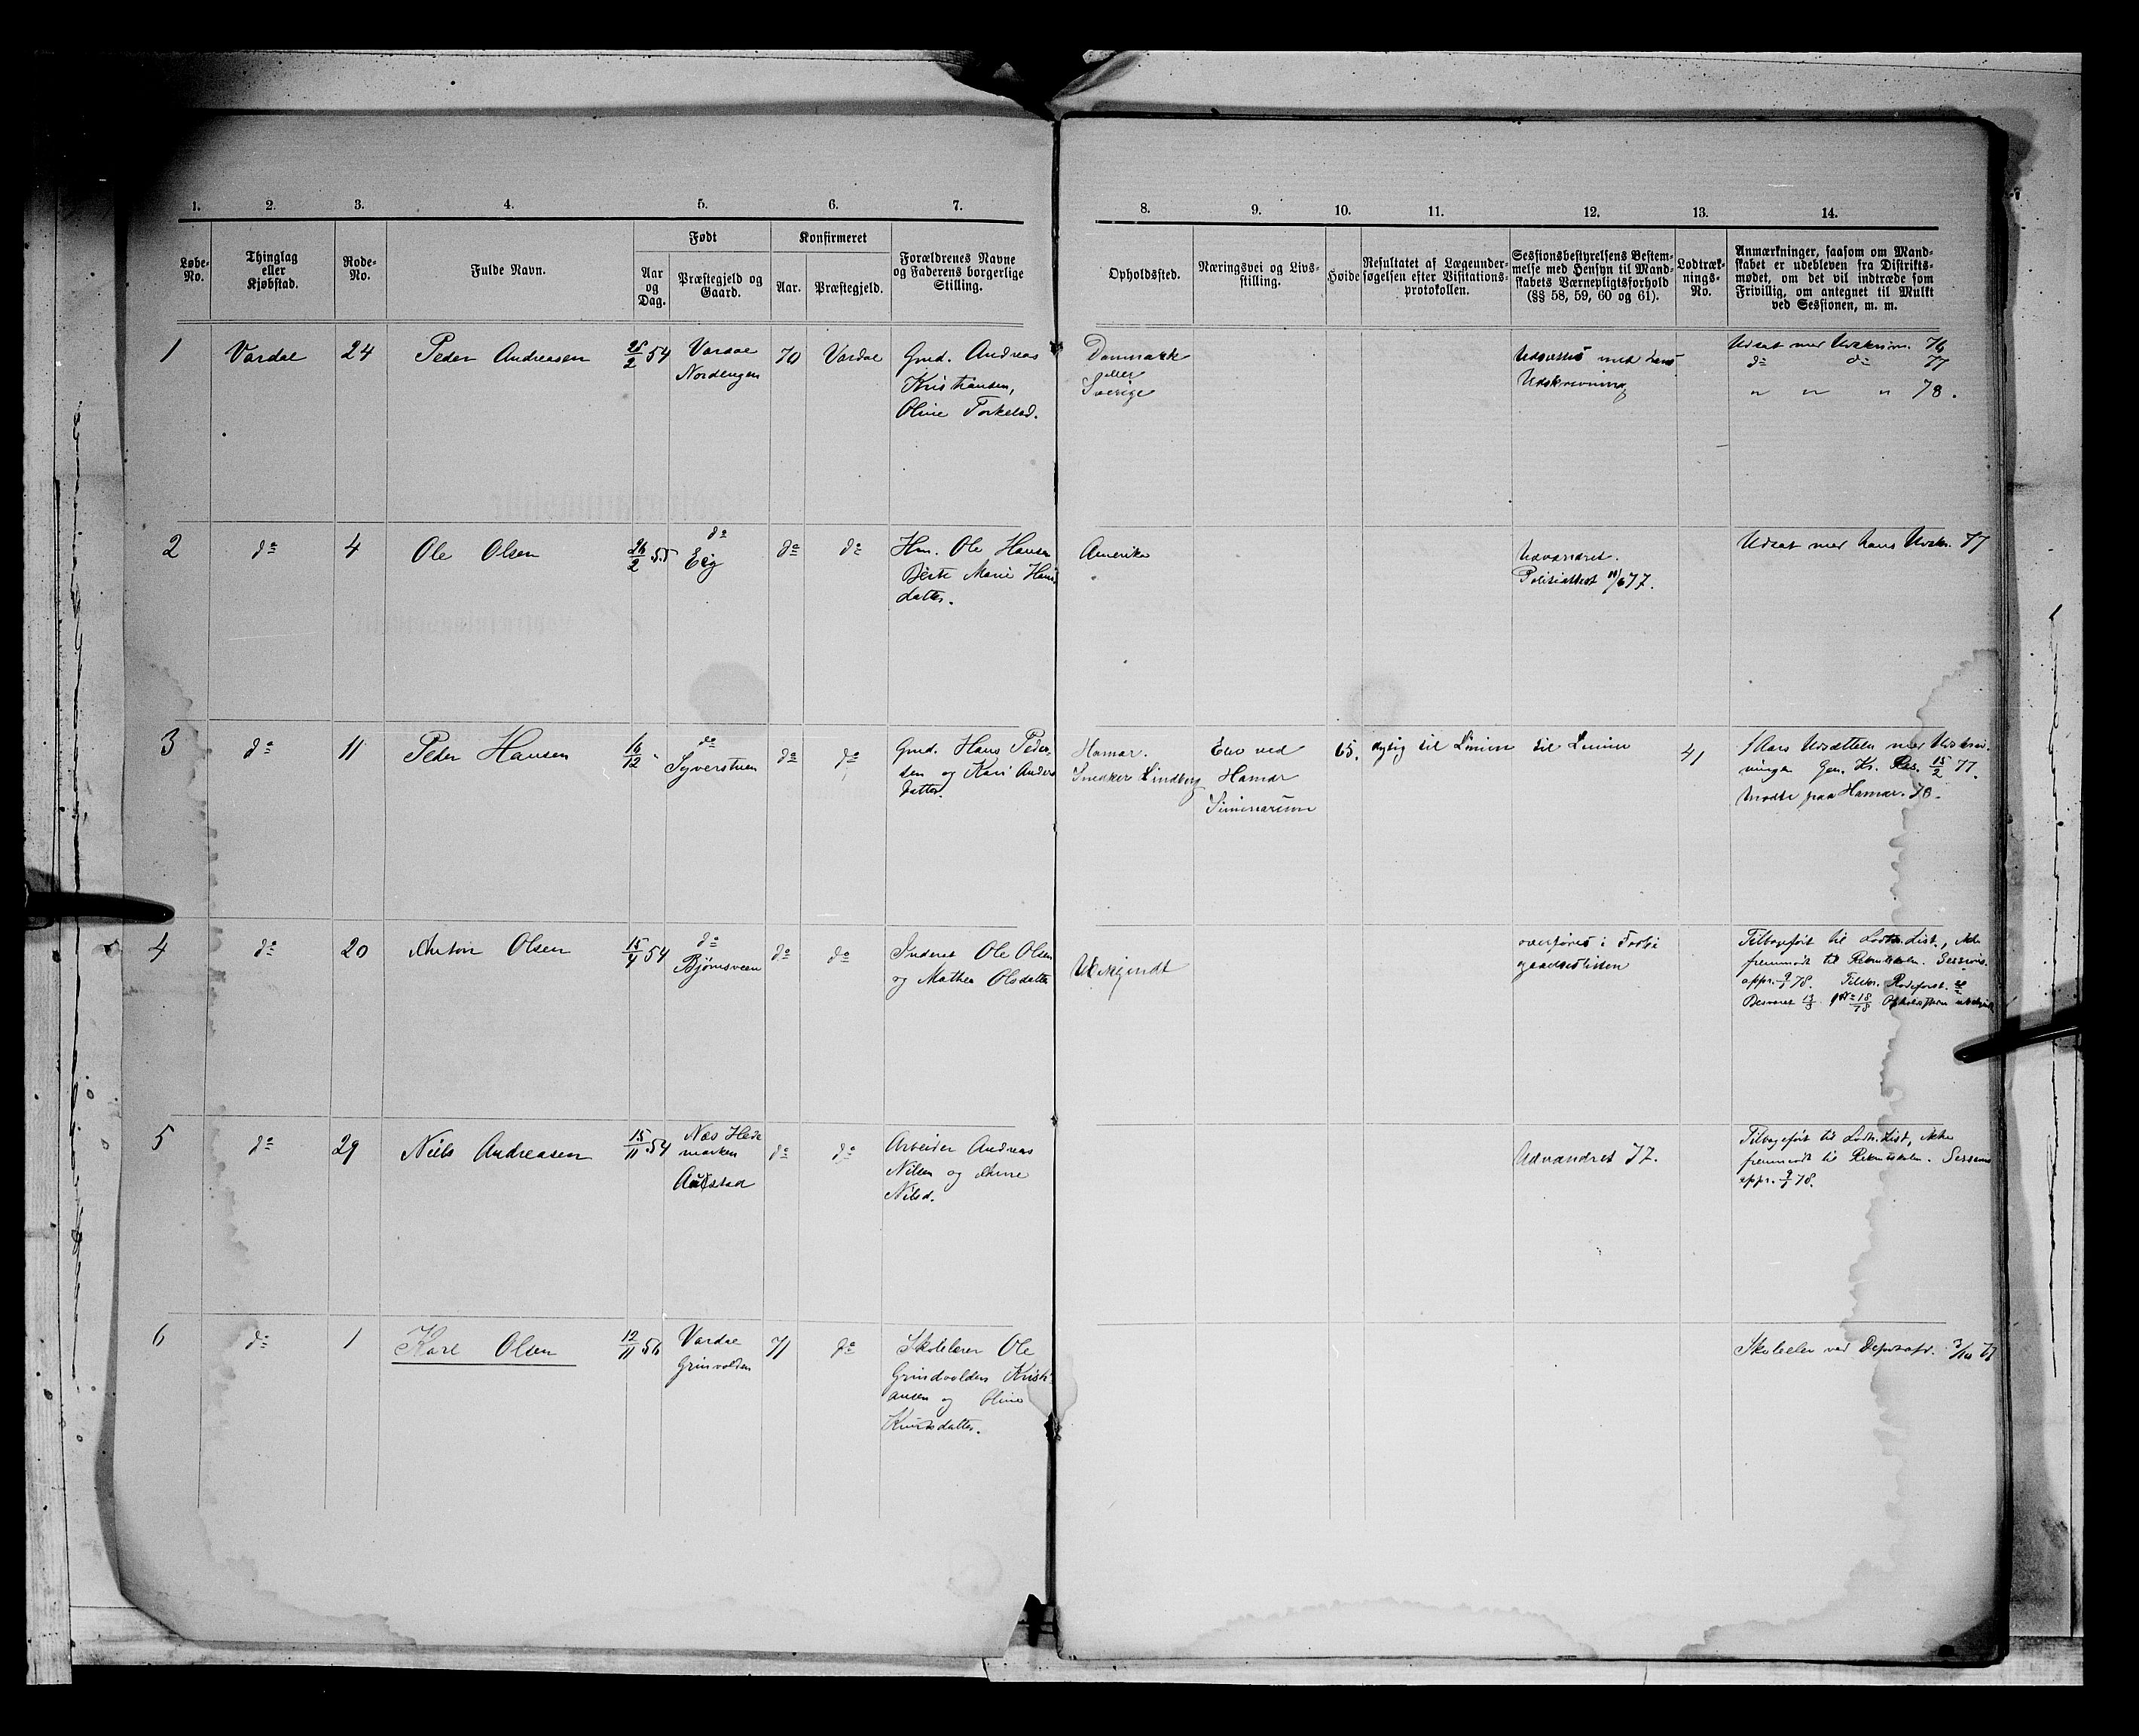 1. 2. 3. 4. 5. 6. 7.
Løbe-No.
Thinglag eller Kjøbstad.
Rode-No.
Fulde Navn.
Født
Aar og Dag.
Præstegjeld og Gaard.
Konfirmeret
Aar.
Præstegjeld.
Forældrenes Navne og Faderens borgerlige Stilling.
8. 9. 10. 11. 12. 13. 14.
Opholdssted.
Næringsvei og Livsstilling.
Høide
Resultatet af Lægeundersøgelsen efter Visitationsprotokollen.
Sessionsbestyrelsens Bestemmelse med Hensyn til Mandskabets Værnepligtsforhold (§§ 58, 59, 60 og 61).
Lodtræknings-No.
Anmærkninger, saasom om Mandskabet er udebleven fra Distriktsmødet, om det vil indtræde som Frivillig, om antegnet til Mulkt ved Sessionen, m. m.
1 Vardal 24 Peder Andreasen 28/2 54 Vardal 70 Vardal Gmd. Andreas
Nordengen Kristiansen,
Oline Torkelsd.
Danmark
eller
Sverige
Udsættes med hans
Udskrivning
Udsat med Udskrivn. 76
do do 77
" " " 78.
2 do 4 Ole Olsen 26/2 55 do do do Hm. Ole Hansen
Eeg Berte Marie Hans
datter.
Amerika
Udvandret.
Politiattest 77.
Udsat med hans Udskr. 77
3 do 11 Peder Hansen 16/12 do do do Gmd. Hans Peder
Syverstuen sen og Kari Anders
datter.
Hamar.
Snedker Lindberg
Elev ved
Hamar
Seminarium
65. dygtig til Linien til Linien 41
1 Aars Udsættelse med Udskriv
ningen Gen. Kr. Res. 15/2 77.
Mødte paa Hamar. 78.
4 do 20 Anton Olsen 15/4 54 do do do Inderst Ole Olsen
Bjørnsveen og Mathea Olsdatter
Ubekjendt
overføres i Forbi
gaaelseslisten
Tilbageført til Lodtr. List., ikke
fremmødt til Rekrutskolen. Sessions.
5 do 29 Niels Andreasen 15/11 54 Næs Hede do do Arbeider Andreas
marken Nilsen og Anne
Aulstad Nilsd.
Udvandret 77.
Tilbageført til Lodtr. List, ikke
fremmødt til Rekrutskolen. Sessions
6 do 1 Karl Olsen 12/11 56 Vardal 71 do Skolelærer Ole
Grinvolden Grindvolden Kristi
ansen og Oline
Knutsdatter.
Skoleelev ved 77